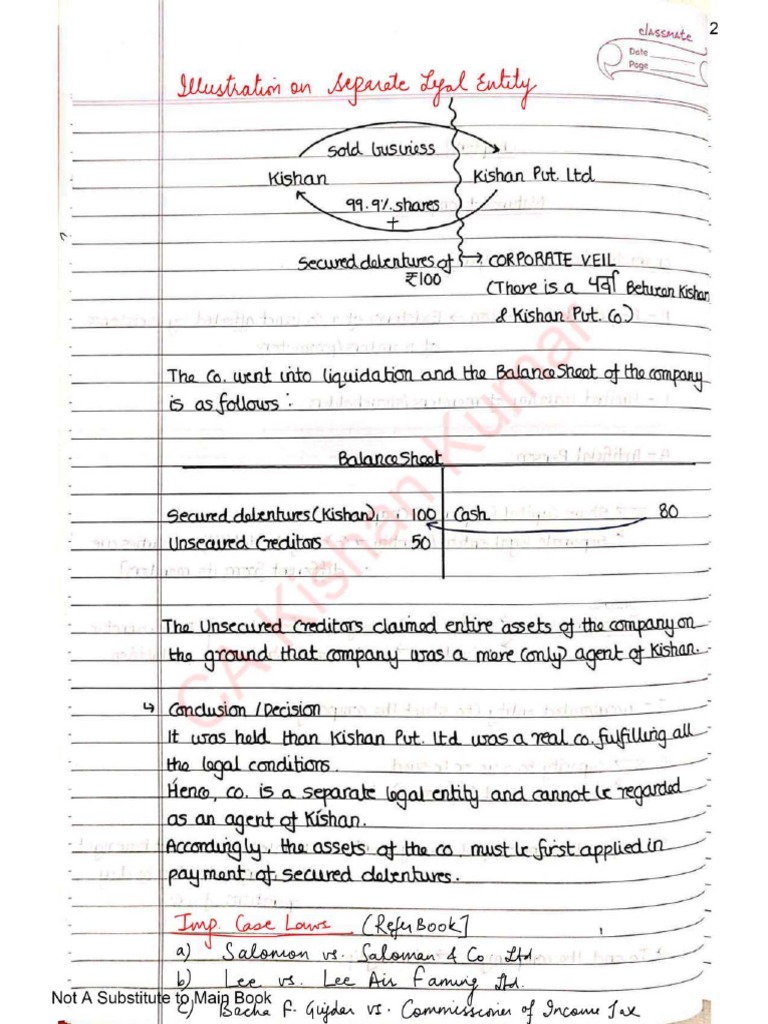 2
classmate
Date
Page
Illustration on Separate Legal Entity
sold business
Kishan
Kishan Pvt. Ltd
99.9% shares
+
Secured debentures of
₹100
→ CORPORATE VEIL
(There is a पर्दा Between Kishan
& Kishan Put. Co)
The Co. went into liquidation and the Balance Sheet of the company
is as follows:
Balance Sheet
Secured debentures (Kishan) 100 Cash 80
Unsecured Creditors 50
The Unsecured Creditors claimed entire assets of the company on
the ground that company was a mere (only) agent of Kishan.
↳ Conclusion / Decision
It was held than Kishan Put. Ltd was a real co. fulfilling all
the legal conditions.
Hence, co. is a separate legal entity and cannot be regarded
as an agent of Kishan.
Accordingly, the assets of the co. must be first applied in
payment of secured debentures.
Imp. Case Laws (Refer Book]
a) Salomon vs. Saloman & Co Ltd.
b) Lee vs. Lee Air Faming Ltd.
c) Bacha F. Guzdar vs. Commissioner of Income Tax
Not A Substitute to Main Book
CA Kishan Kumar